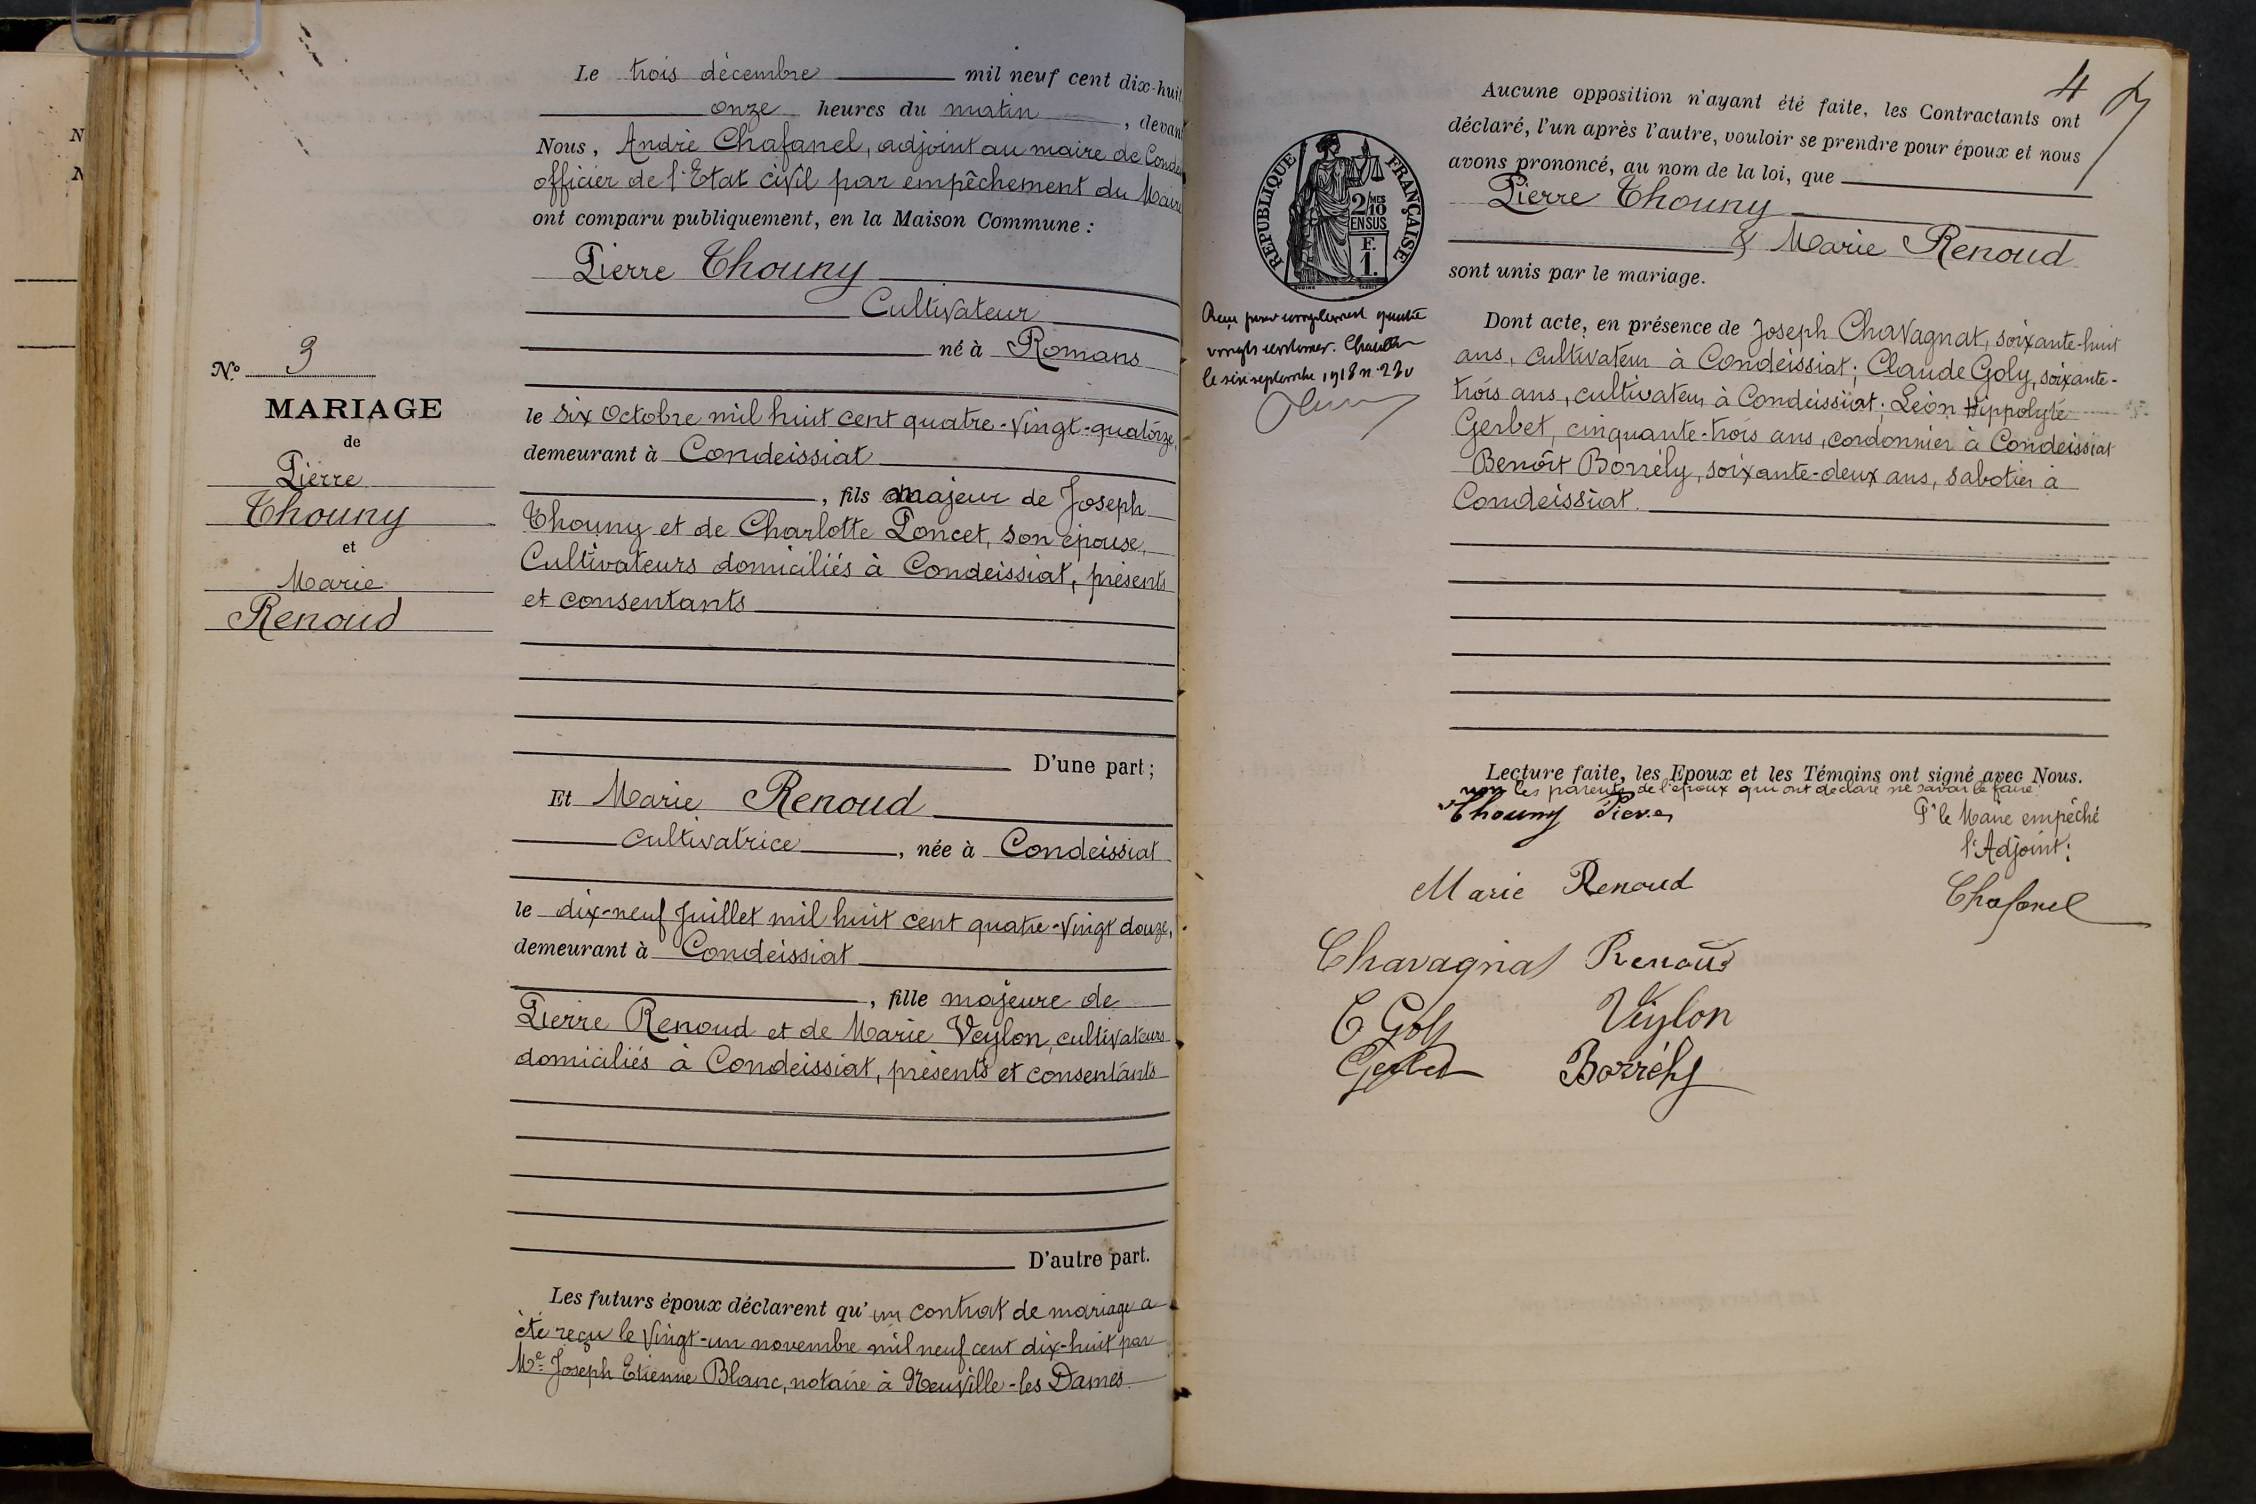 N
N
Le trois décembre mil neuf cent dix-huit
onze heures du matin, devant
Nous, André Chafanel, adjoint au maire de Condei
officier de l'Etat civil par empêchement du Maire
ont comparu publiquement, en la Maison Commune :
Pierre Thouny
Cultivateur
né à Romans
le six Octobre mil huit cent quatre-vingt-quatorze,
demeurant à Condeissiat
, fils majeur de Joseph
Thouny et de Charlotte Poncet, son épouse,
Cultivateurs domiciliés à Condeissiat, présents
et consentants
D'une part ;
N.º 3
MARIAGE
de
Pierre
Thouny
et
Marie
Renoud
Et Marie Renoud
cultivatrice, née à Condeissiat
le dix-neuf Juillet mil huit cent quatre-vingt douze,
demeurant à Condeissiat
, fille majeure de
Pierre Renoud et de Marie Veylon, cultivateurs
domiciliés à Condeissiat, présents et consentants
D'autre part.
Les futurs époux déclarent qu'un contrat de mariage a
été reçu le vingt-un novembre mil neuf cent dix-huit par
Me Joseph Etienne Blanc, notaire à Neuville-les Dames
4
Aucune opposition n'ayant été faite, les Contractants ont
déclaré, l'un après l'autre, vouloir se prendre pour époux et nous
avons prononcé, au nom de la loi, que
Pierre Thouny
& Marie Renoud
sont unis par le mariage.
RÉPUBLIQUE FRANÇAISE
2 MES
10
EN SUS
F.
1.
Reçu pour complément quatre
vingts centimes.
le six septembre 1918 n. 230
Dont acte, en présence de Joseph Chavagnat, soixante-huit
ans, cultivateur à Condeissiat ; Claude Goly, soixante-
trois ans, cultivateur à Condeissiat ; Léon Hippolyte
Gerbet, cinquante-trois ans, cordonnier à Condeissiat
Benoît Borrély, soixante-deux ans, sabotier à
Condeissiat.
Lecture faite, les Epoux et les Témoins ont signé avec Nous.
non les parents de l'époux qui ont déclaré ne savoir le faire
Thouny Pierre
Pr le Maire empêché
l'Adjoint :
Chafanel
Marie Renoud
Chavagnat Renoud
C Goly Veylon
Gerbet Borrély